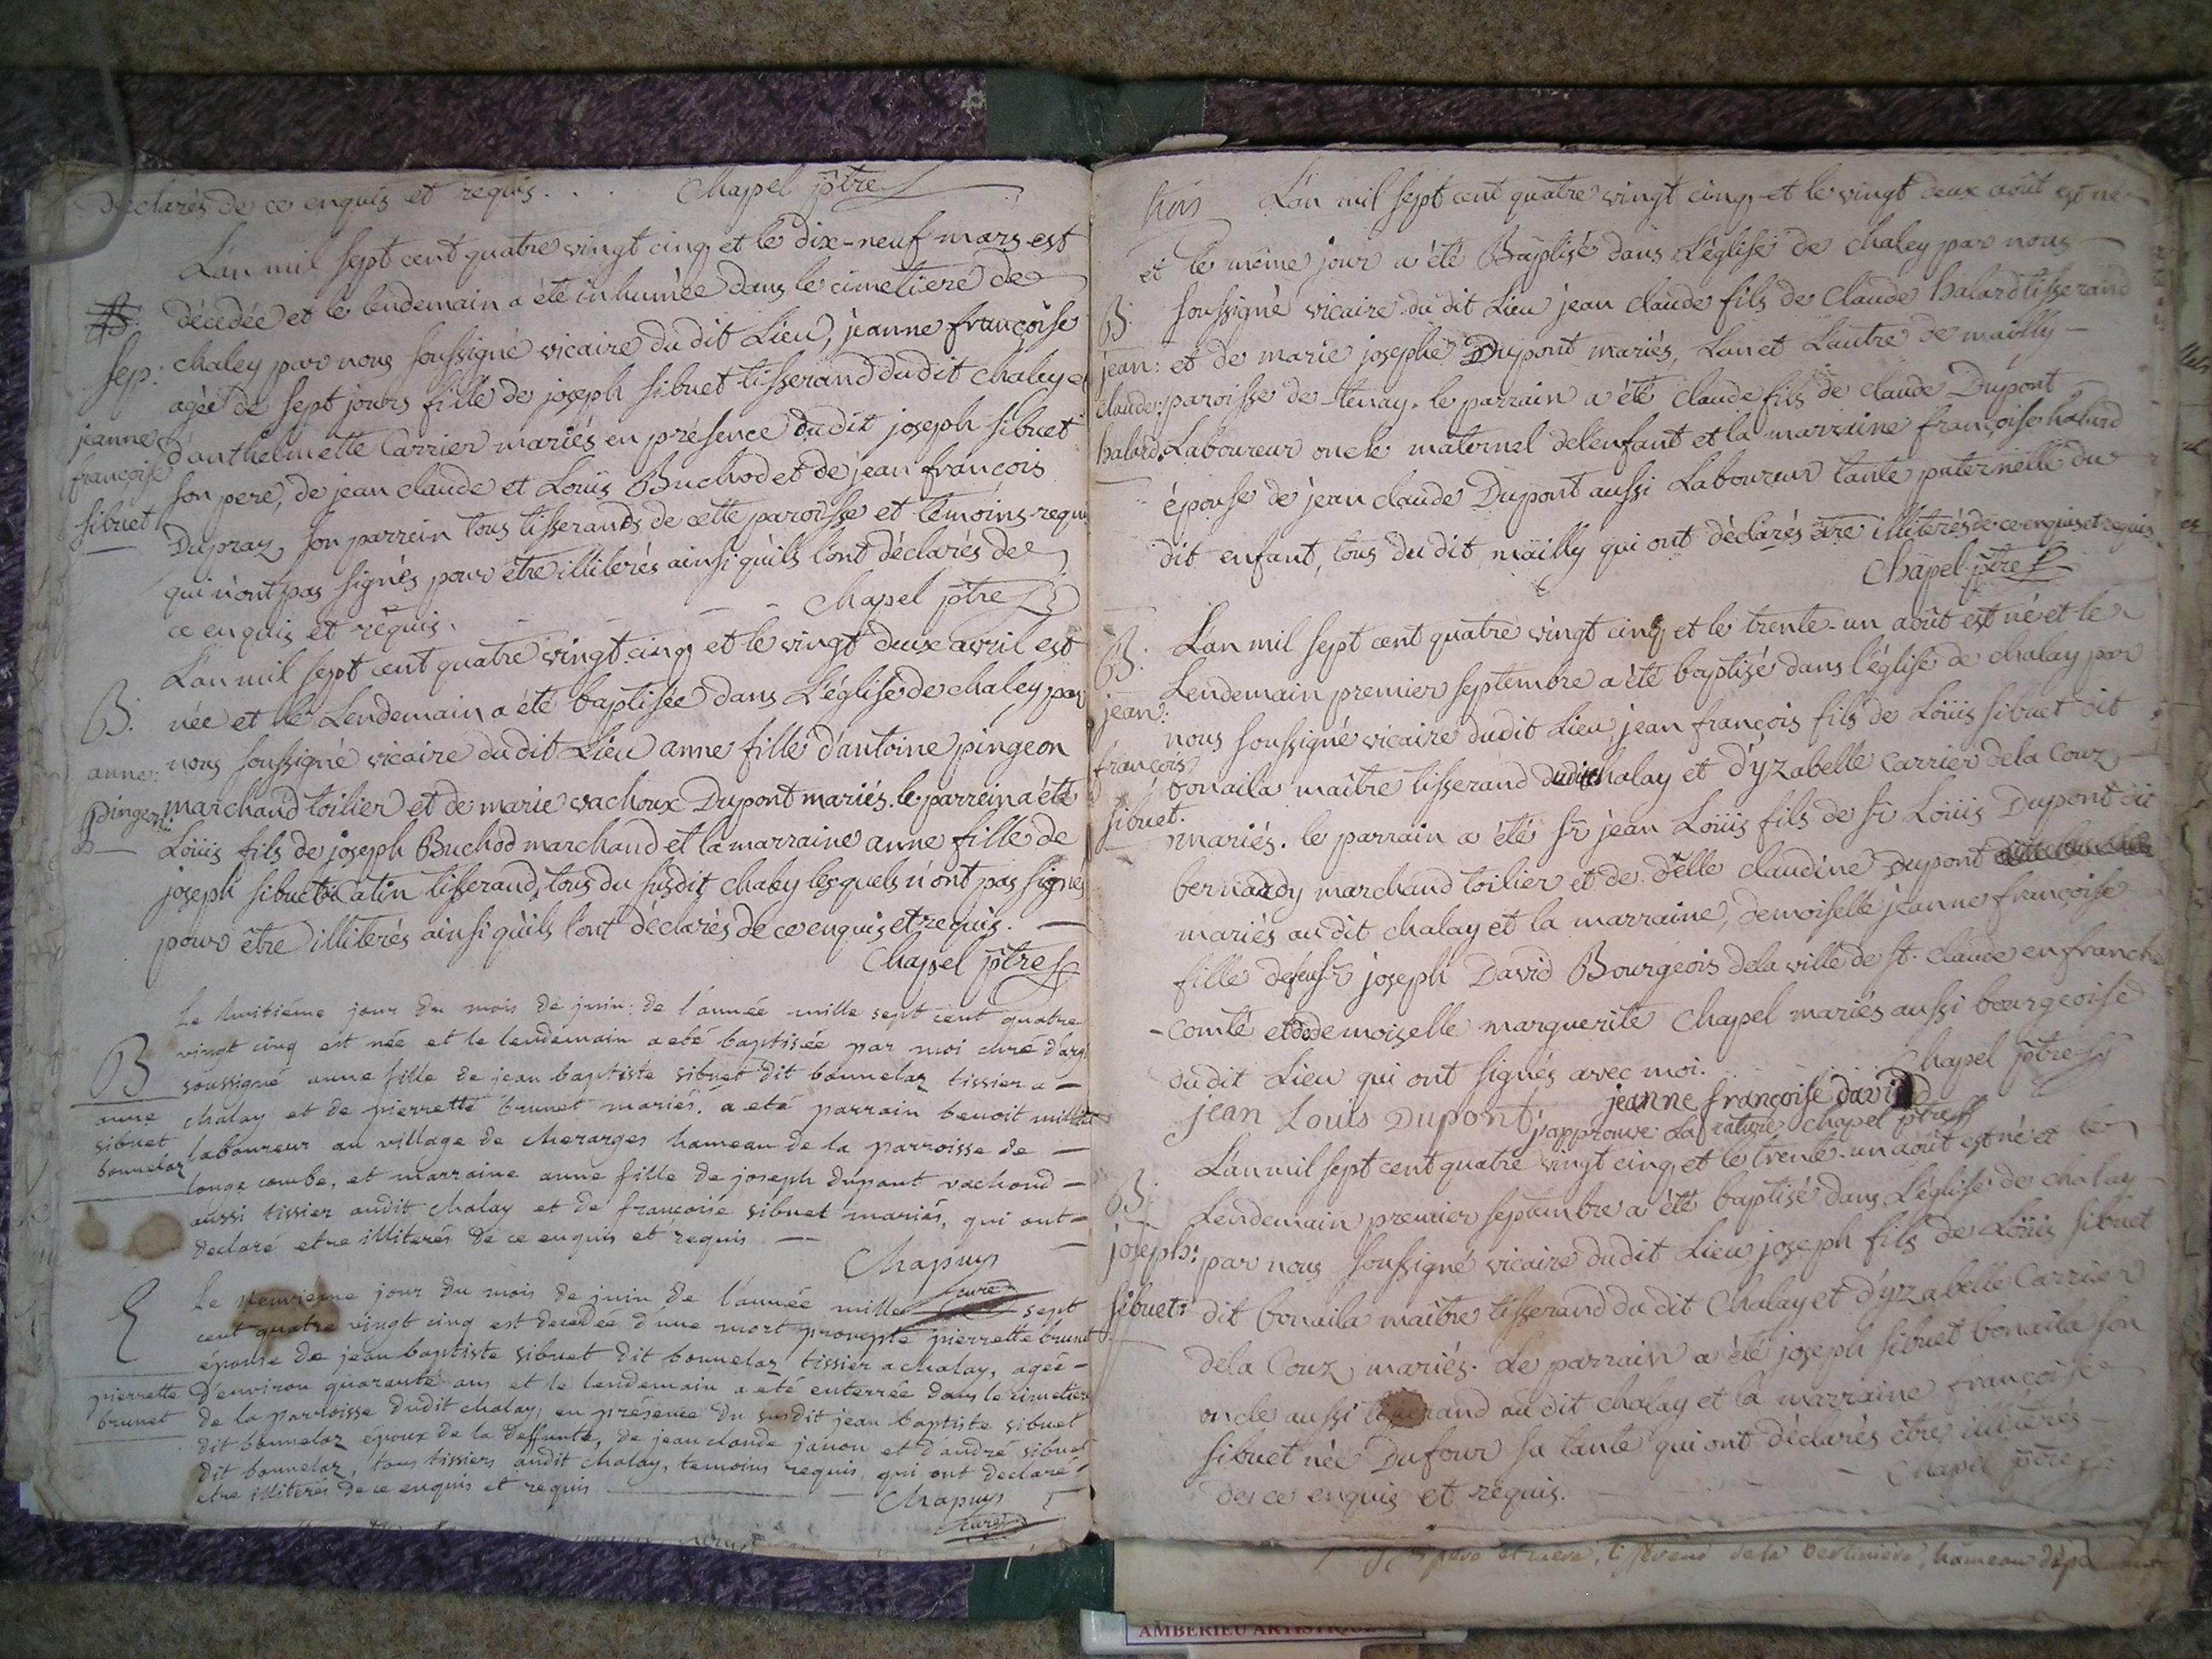 declarés de ce enquis et requis. . . Chapel ptre
L'an mil sept cent quatre vingt cinq et le dix-neuf mars est
décédée et le lendemain a été inhumée dans le cimetiere de
Sep: chaley par nous soussigné vicaire du dit Lieu, jeanne françoise
agée de sept jours fille de joseph sibuet tisserand du dit chaley et
jeanne d'anthelmette Carrier mariés en présence du dit joseph sibuet
françoise son pere, de jean claude et Loüis Buchod et de jean françois
sibuet Dupraz, son parrein tous tisserands de cette paroisse et témoins requis
qui n'ont pas signés pour être illiterés ainsi qu'ils l'ont déclarés de
ce enquis et requis. - - Chapel ptre
L'an mil sept cent quatre vingt cinq et le vingt deux avril est
B. née et le Lendemain a été baptisée dans L'église de chaley par
anne: nous soussigné vicaire du dit Lieu anne fille d'antoine pingeon
pingeon: marchand toilier et de marie vachoux Dupont mariés. le parrein a été
Loüis fils de joseph Buchod marchand et la marraine anne fille de
joseph sibuet catin tisserand, tous du susdit chaley lesquels n'ont pas signés
pour être illiterés ainsi qu'ils l'ont déclarés de ce enquis et requis.
Chapel ptre
Le huitiéme jour du mois de juin de l'année mille sept cent quatre
vingt cinq est née et le lendemain a eté baptisée par moi curé d'argi
B soussigné anne fille de jean baptiste sibuet dit bonnelaz tissier a
anne chalay et de pierrette brunet mariés. a eté parrain benoit
sibuet laboureur au village de cherarges hameau de la parroisse de
bonnelaz longe combe, et marraine anne fille de joseph dupont vachoud
aussi tissier audit chalay et de françoise sibuet mariés, qui ont
declaré etre illiterés de ce enquis et requis
Chapuys
curé
Le neuvieme jour du mois de juin de l'année mille sept
cent quatre vingt cinq est decedée d'une mort prompte pierrette brunet
épouse de jean baptiste sibuet dit bonnelaz tissier a chalay, agée
pierrette d'environ quarante ans et le lendemain a eté enterrée dans le cimetiere
brunet de la parroisse dudit chalay, en présence du susdit jean baptiste sibuet
dit bonnelaz époux de la deffunte, de jean claude janon et d'andré sibuet
dit bonnelaz, tous tissiers audit chalay, temoins requis, qui ont declaré
etre illiterés de ce enquis et requis Chapuys
curé
L'an mil sept cent quatre vingt cinq et le vingt deux août est né
et le même jour a été Baptisé dans L'église de chaley par nous
B. soussigné vicaire du dit Lieu jean claude fils de Claude halard tisserand
jean: et de marie josephe Dupont mariés, L'un et L'autre de mailly
claude: paroisse de tenay. le parrain a été claude fils de claude Dupont
halard. Laboureur oncle maternel de l'enfant et la marraine françoise halard
épouse de jean claude Dupont aussi Laboureur tante paternelle du
dit enfant, tous du dit mailly qui ont déclarés être illiterés de ce enquis et requis.
Chapel ptre
B. L'an mil sept cent quatre vingt cinq et le trente-un août est né et le
Lendemain premier septembre a été baptisé dans l'église de chalay par
jean: nous soussigné vicaire du dit Lieu, jean françois fils de Loüis sibuet dit
françois bonaila maître tisserand dudit chalay et d'yzabelle Carrier de la Couz
sibuet. mariés. le parrain a été sr jean Loüis fils de sr Loüis Dupont dit
bernardy marchand toilier et de delle claudine Dupont
mariés au dit chalay et la marraine, demoiselle jeanne françoise
fille de feu sr joseph David Bourgeois de la ville de st. claude en franche
-comté et de demoiselle marguerite Chapel mariés aussi bourgeoise
du dit Lieu qui ont signés avec moi. Chapel ptre
jean Louis Dupont jeanne françoise david
j'approuve la rature Chapel ptre
L'an mil sept cent quatre vingt cinq et le trente-un août est né et le
B. Lendemain premier septembre a été baptisé dans L'église de chalay
joseph: par nous soussigné vicaire du dit Lieu joseph fils de Loüis sibuet
sibuet: dit bonaila maître tisserand du dit Chalay et d'yzabelle Carrier
de la Couz mariés. Le parrain a été joseph sibuet bonaila son
oncle aussi tisserand au dit chalay et la marraine françoise
sibuet née Dufour sa tante qui ont déclarés être illiterés
de ce enquis et requis. Chapel ptre
hameau
AMBERIEU ARTISTIQUE